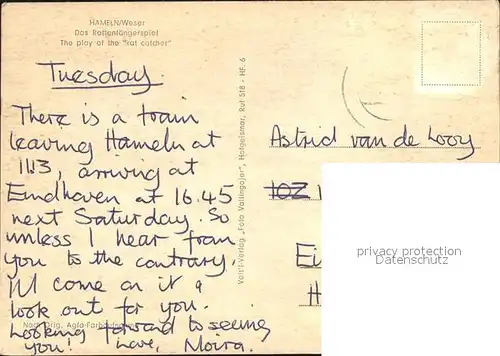 HAMELN/Weser
Das Rattenfängerspiel
The play of the "rat catcher"
Tuesday.
There is a train
leaving Hameln at
1113, arriving at
Eindhoven at 16.45
next Saturday. So
unless I hear from
you to the contrary,
I'll come on it &
look out for you.
Looking forward to seeing
you! Love, Moira.
Astrid van de Looy
10Z 1
Ei
H
privacy protection
Datenschutz
Verlag "Foto Vallingojer", Hofgeismar, Ruf 518 - HF. 6
Orig. Agfa-Farb